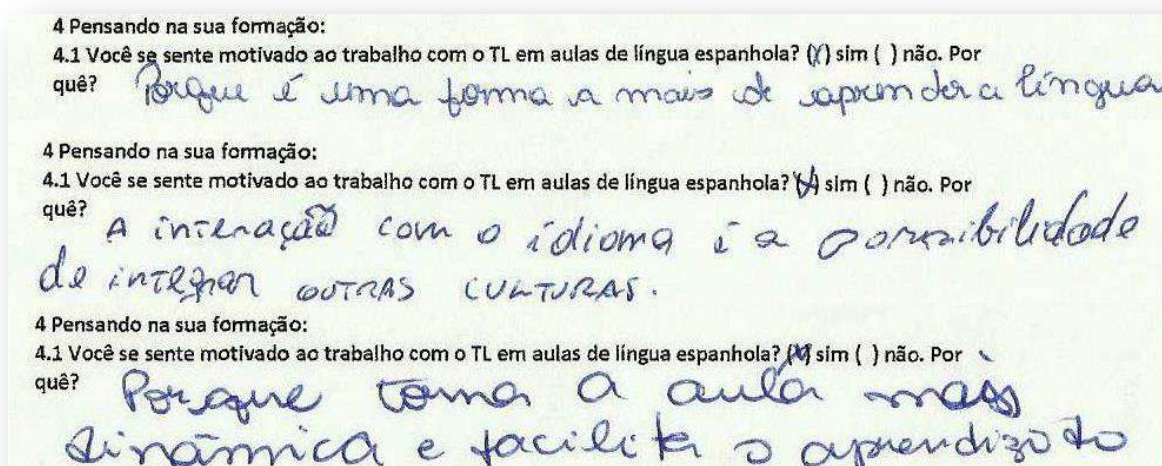 4 Pensando na sua formação:
4.1 Você se sente motivado ao trabalho com o TL em aulas de língua espanhola? (X) sim ( ) não. Por
quê? Porque é uma forma a mais de aprender a língua
4 Pensando na sua formação:
4.1 Você se sente motivado ao trabalho com o TL em aulas de língua espanhola? (X) sim ( ) não. Por
quê? A interação com o idioma é a possibilidade
de integrar OUTRAS CULTURAS.
4 Pensando na sua formação:
4.1 Você se sente motivado ao trabalho com o TL em aulas de língua espanhola? (X) sim ( ) não. Por
quê? Porque torna a aula mais
dinâmica e facilita o aprendizado